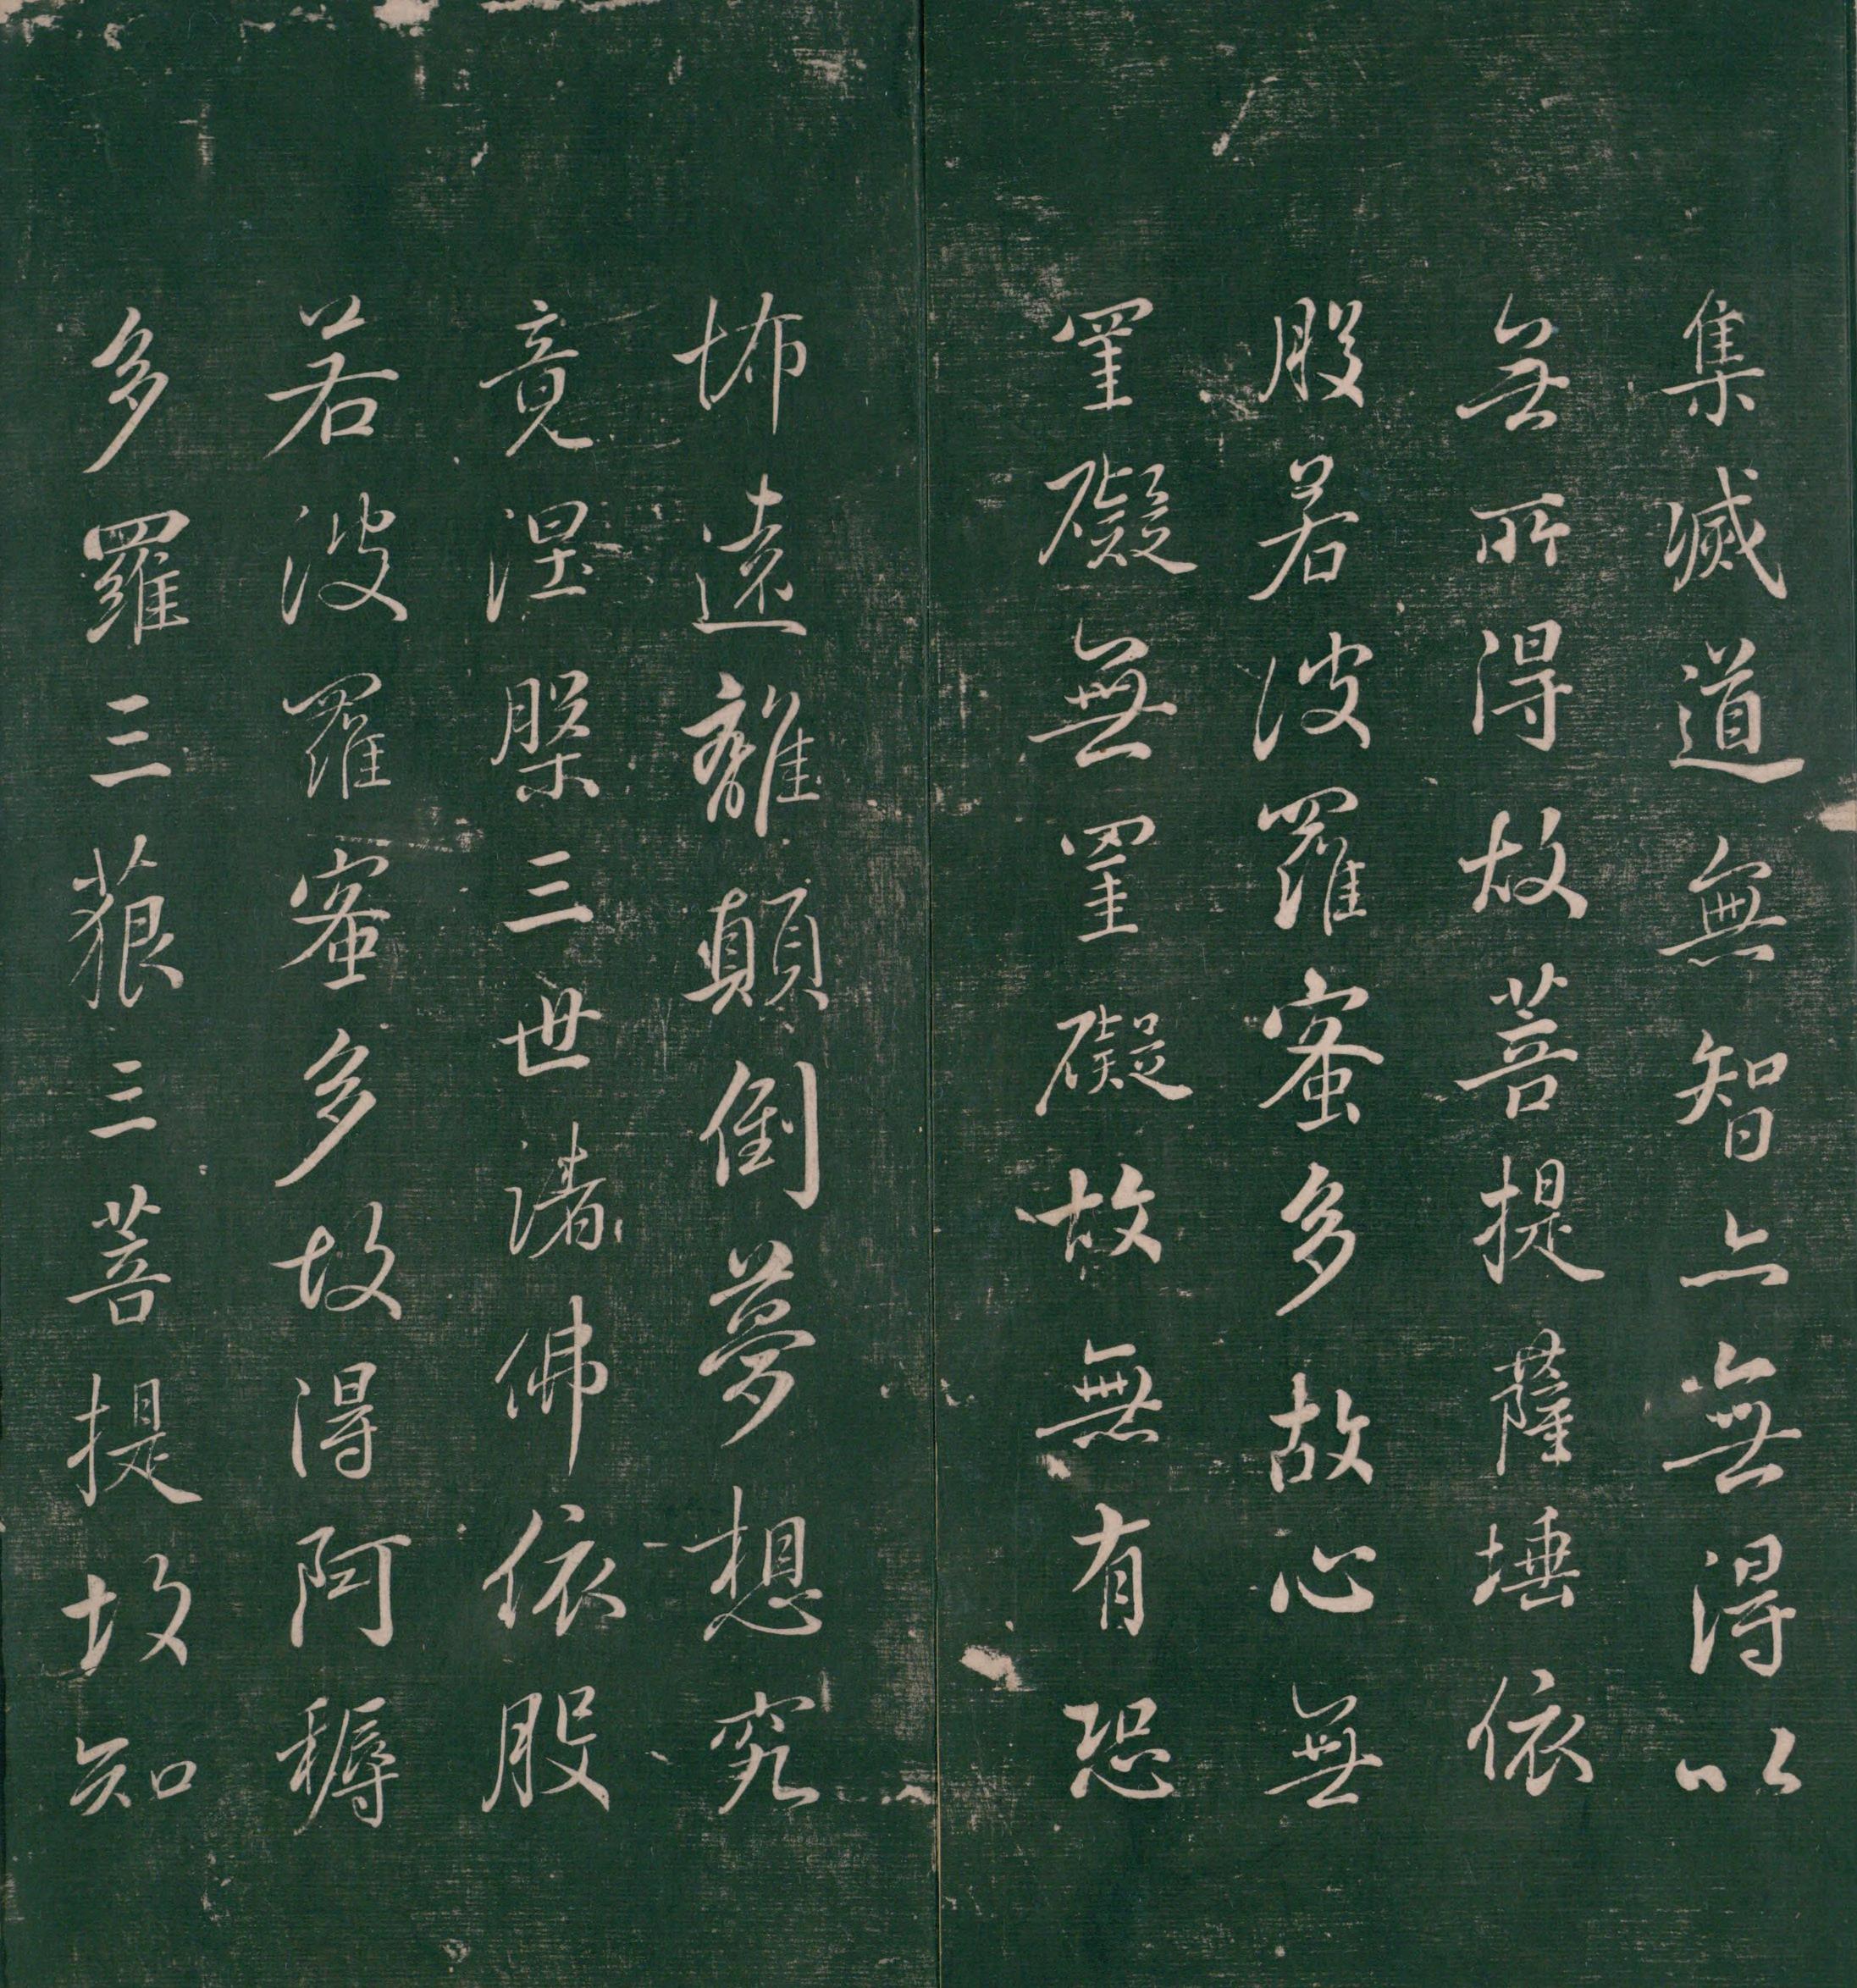 集滅道無智亦無得以
無所得故菩提薩埵依
般若波羅蜜多故心無
罣礙無罣礙故無有恐
怖遠離顛倒夢想究
竟涅槃三世諸佛依般
若波羅蜜多故得阿耨
多羅三藐三菩提故知